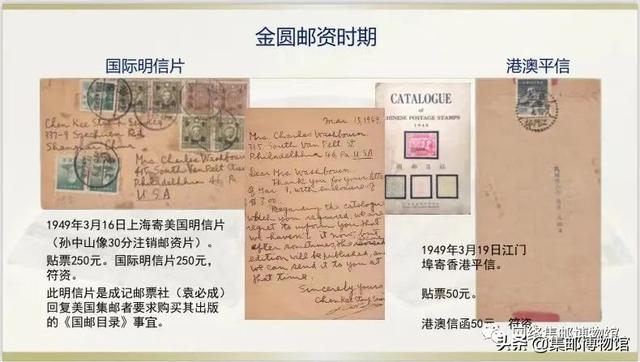 金圆邮资时期
国际明信片
港澳平信
Chen Kee Stamp Service
Shanghai China
Mrs. Charles Washbourn
Philadelphia 46, Pa
USA
Mar 15, 1949
Mrs. Charles Washbourn
South Van Pelt St
Philadelphia 46, Pa
USA
Dear Mrs. Washbourn
Thank you for your letter
of Mar 7, with enclosure of
$3.00.
Regarding the catalogue
which you required, we are
regret to inform you that
we haven't it now, but
after sometimes the revised
edition will be published, and
we can send it to you at
that time.
Sincerely yours
CATALOGUE
of
CHINESE POSTAGE STAMPS
1948
1949年3月16日上海寄美国明信片
(孙中山像30分注销邮资片)。
贴票250元。国际明信片250元,
符资。
此明信片是成记邮票社(袁必成)
回复美国集邮者要求购买其出版
的《国邮目录》事宜。
1949年3月19日江门
埠寄香港平信。
贴票50元。
港澳信函50元,符资
网络集邮博物馆
头条@集邮博物馆